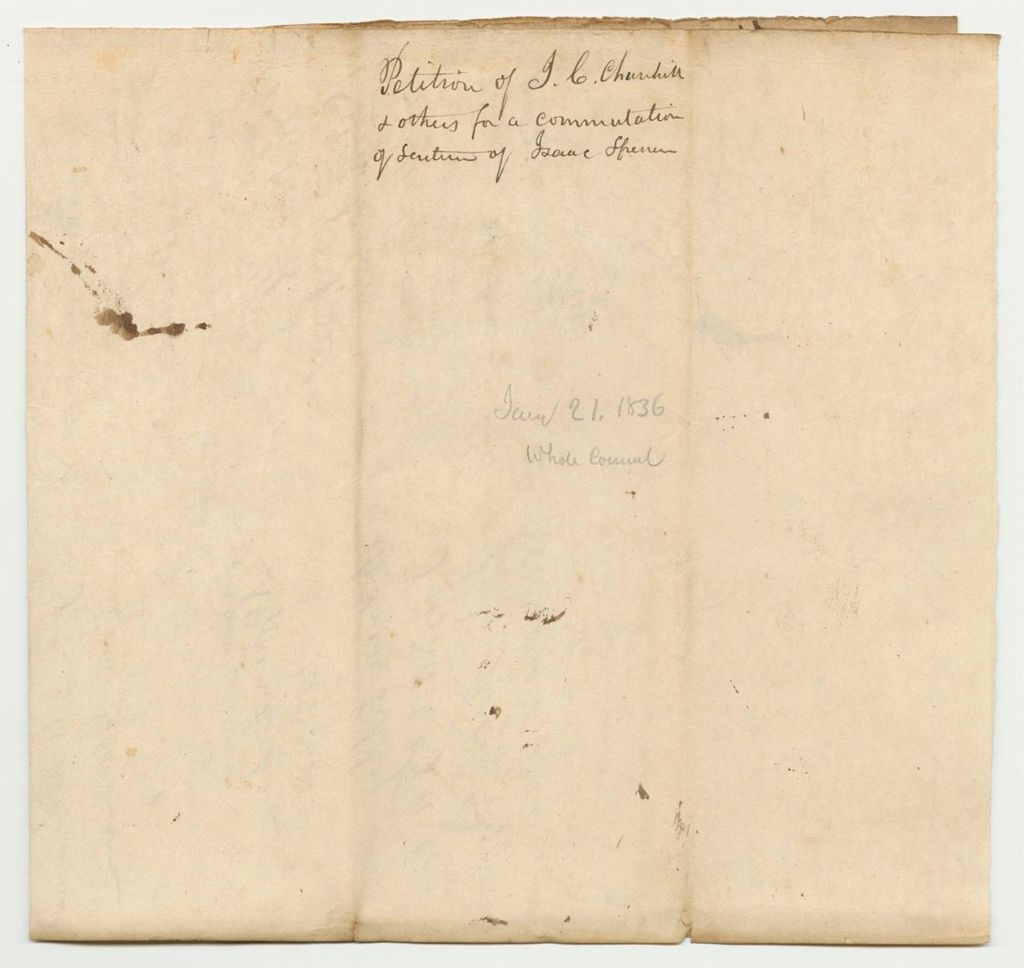 Petition of J. C. Churchill
& others for a commutation
of Sentence of Isaac Spencer
Jany 21. 1836
Whole Council